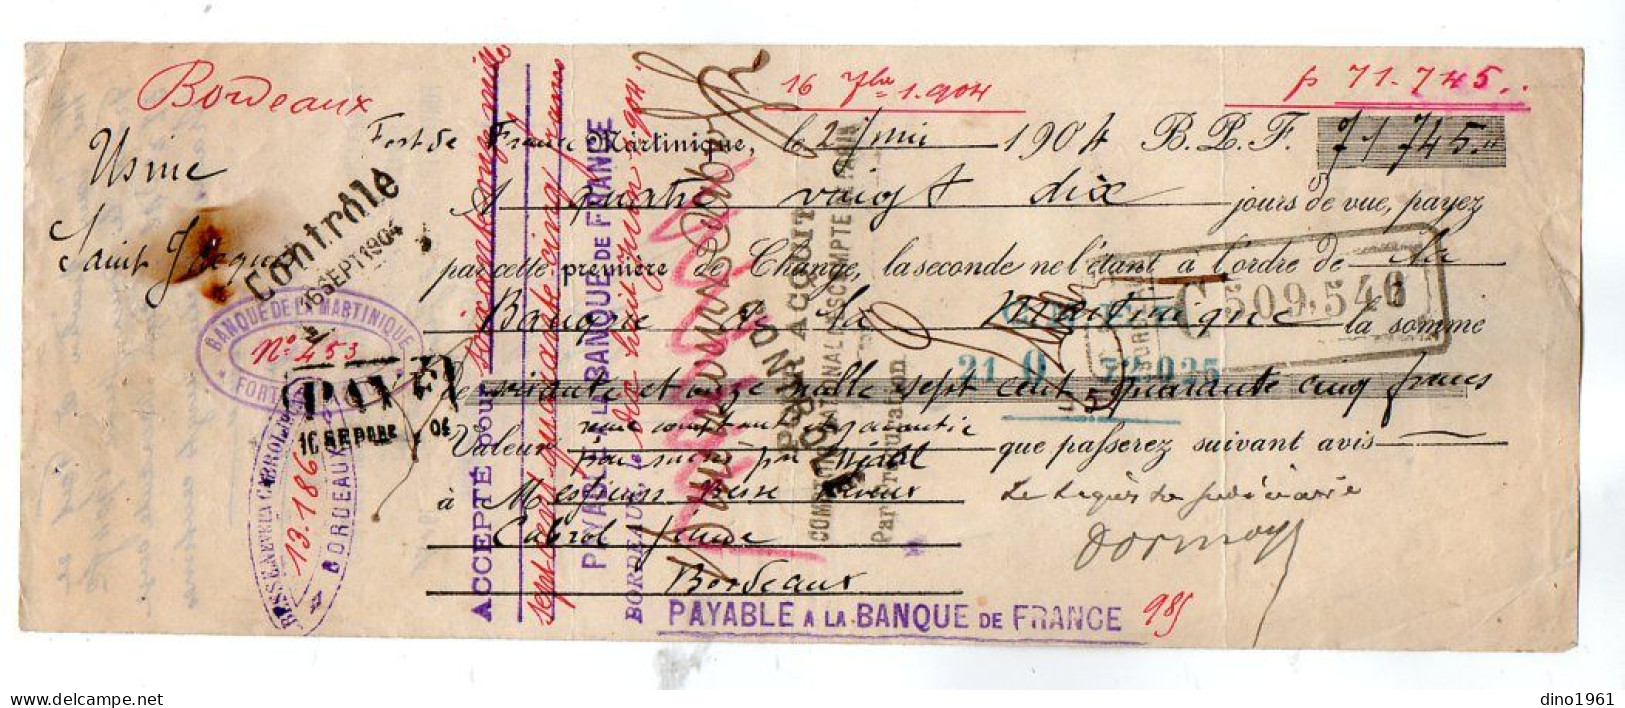 Bordeaux
16 7bre 1.904
p 71.745..
Usine
Saint Jacques
Fort de France Martinique, le 2 mai 1904 B.P.F. 71745."
A quatre vingt dix jours de vue, payez
par cette première de Change, la seconde ne l'étant à l'ordre de la
Banque de la Martinique la somme
de soixante et onze mille sept cent quarante cinq francs
Valeur
que passerez suivant avis
à Messieurs Besse Neveux
Cabrol Jeune
Bordeaux
Le Séquestre judiciaire
Dormoy
PAYABLE A LA BANQUE DE FRANCE
985
Contrôle
16 SEPT 1904
BANQUE DE LA MARTINIQUE
FORT
No 453
PAYÉ
16 SEPBRE 04
BESSE NEVEU & CABROL JNE
BORDEAUX
13.186
ACCEPTÉ pour soixante onze mille
sept cent quarante cinq francs
PAYABLE A LA BANQUE DE FRANCE
BORDEAUX, le dix huit juin 904.
POUR ACQUIT
COMPTOIR NATIONAL D'ESCOMPTE DE PARIS
Par Procuration
C 509,540
21
72025
dino1961